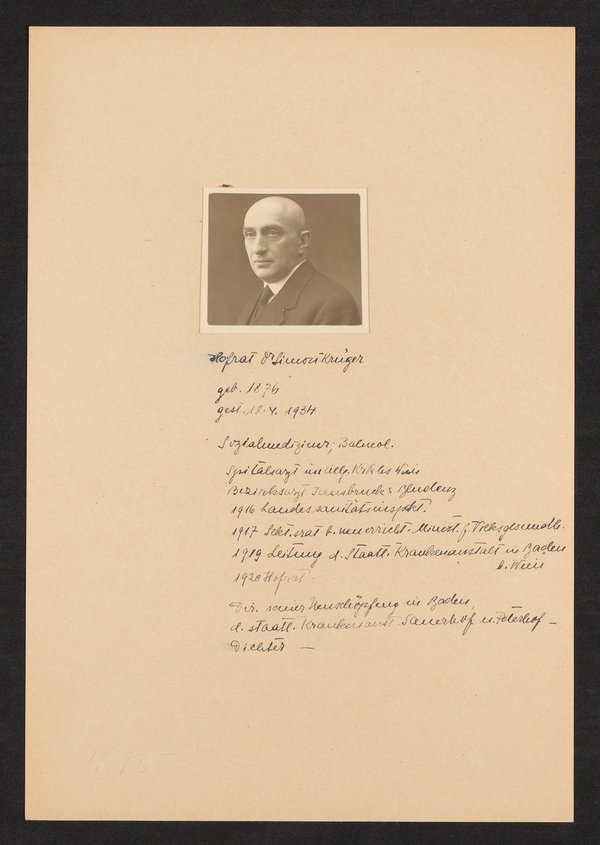 Hofrat Dr Simon Krüger
geb. 1876
gest. 18. 1934
Sozialmediziner, Balneol.
Spitalsarzt im allg. Krkhs Wien
Bezirksarzt Innsbruck Bludenz
1916 Landessanitätsinspekt.
1917 Sekt.srat b. neuerricht. Minist. f. Volksgesundh.
1919 Leitung d. Staatl. Krankenanstalt in Baden
b. Wien
1920 Hofrat
Dir. seiner Neuschöpfung in Baden,
d. staatl. Krankenanst. Sauerhof u. Peterhof –
Dichter —